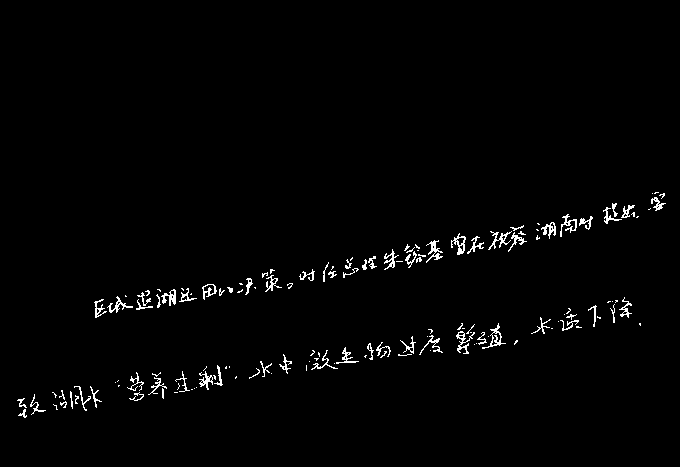 区域退湖还田的决策。时任总理朱镕基曾在视察湖南时提出，要
致湖水“营养过剩”，水中微生物过度繁殖，水质下降，